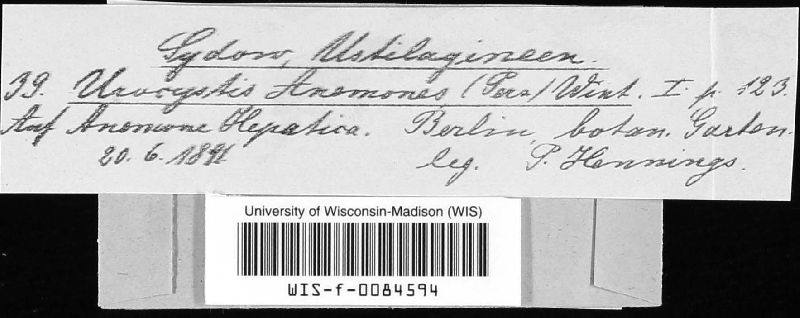 Sydow, Ustilagineen.
39. Urocystis Anemones (Pers) Wint. I. p. 123.
Auf Anemone Hepatica. Berlin, botan. Garten.
20. 6. 1891 leg. P. Hennings.
University of Wisconsin-Madison (WIS)
WIS-f-0084594